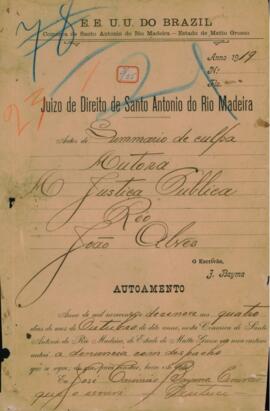 E. E. U. U. DO BRAZIL
Comarca de Santo Antonio do Rio Madeira — Estado de Matto Grosso
Anno 1919
N.
Fls.
Juizo de Direito de Santo Antonio do Rio Madeira
Autos de Summario de culpa
Autora
A Justiça Publica
Réo
João Alves
O Escrivão,
J. Bayma
AUTOAMENTO
Anno de mil novecentos e desenove aos quatro
dias do mez de Outubro do dito anno, nesta Comarca de Santo
Antonio do Rio Madeira, do Estado de Matto Grosso em meu cartorio
autuei a denuncia com despacho
que se segue, do que, para constar, fiz este
Eu José Bayma
que o escrevi